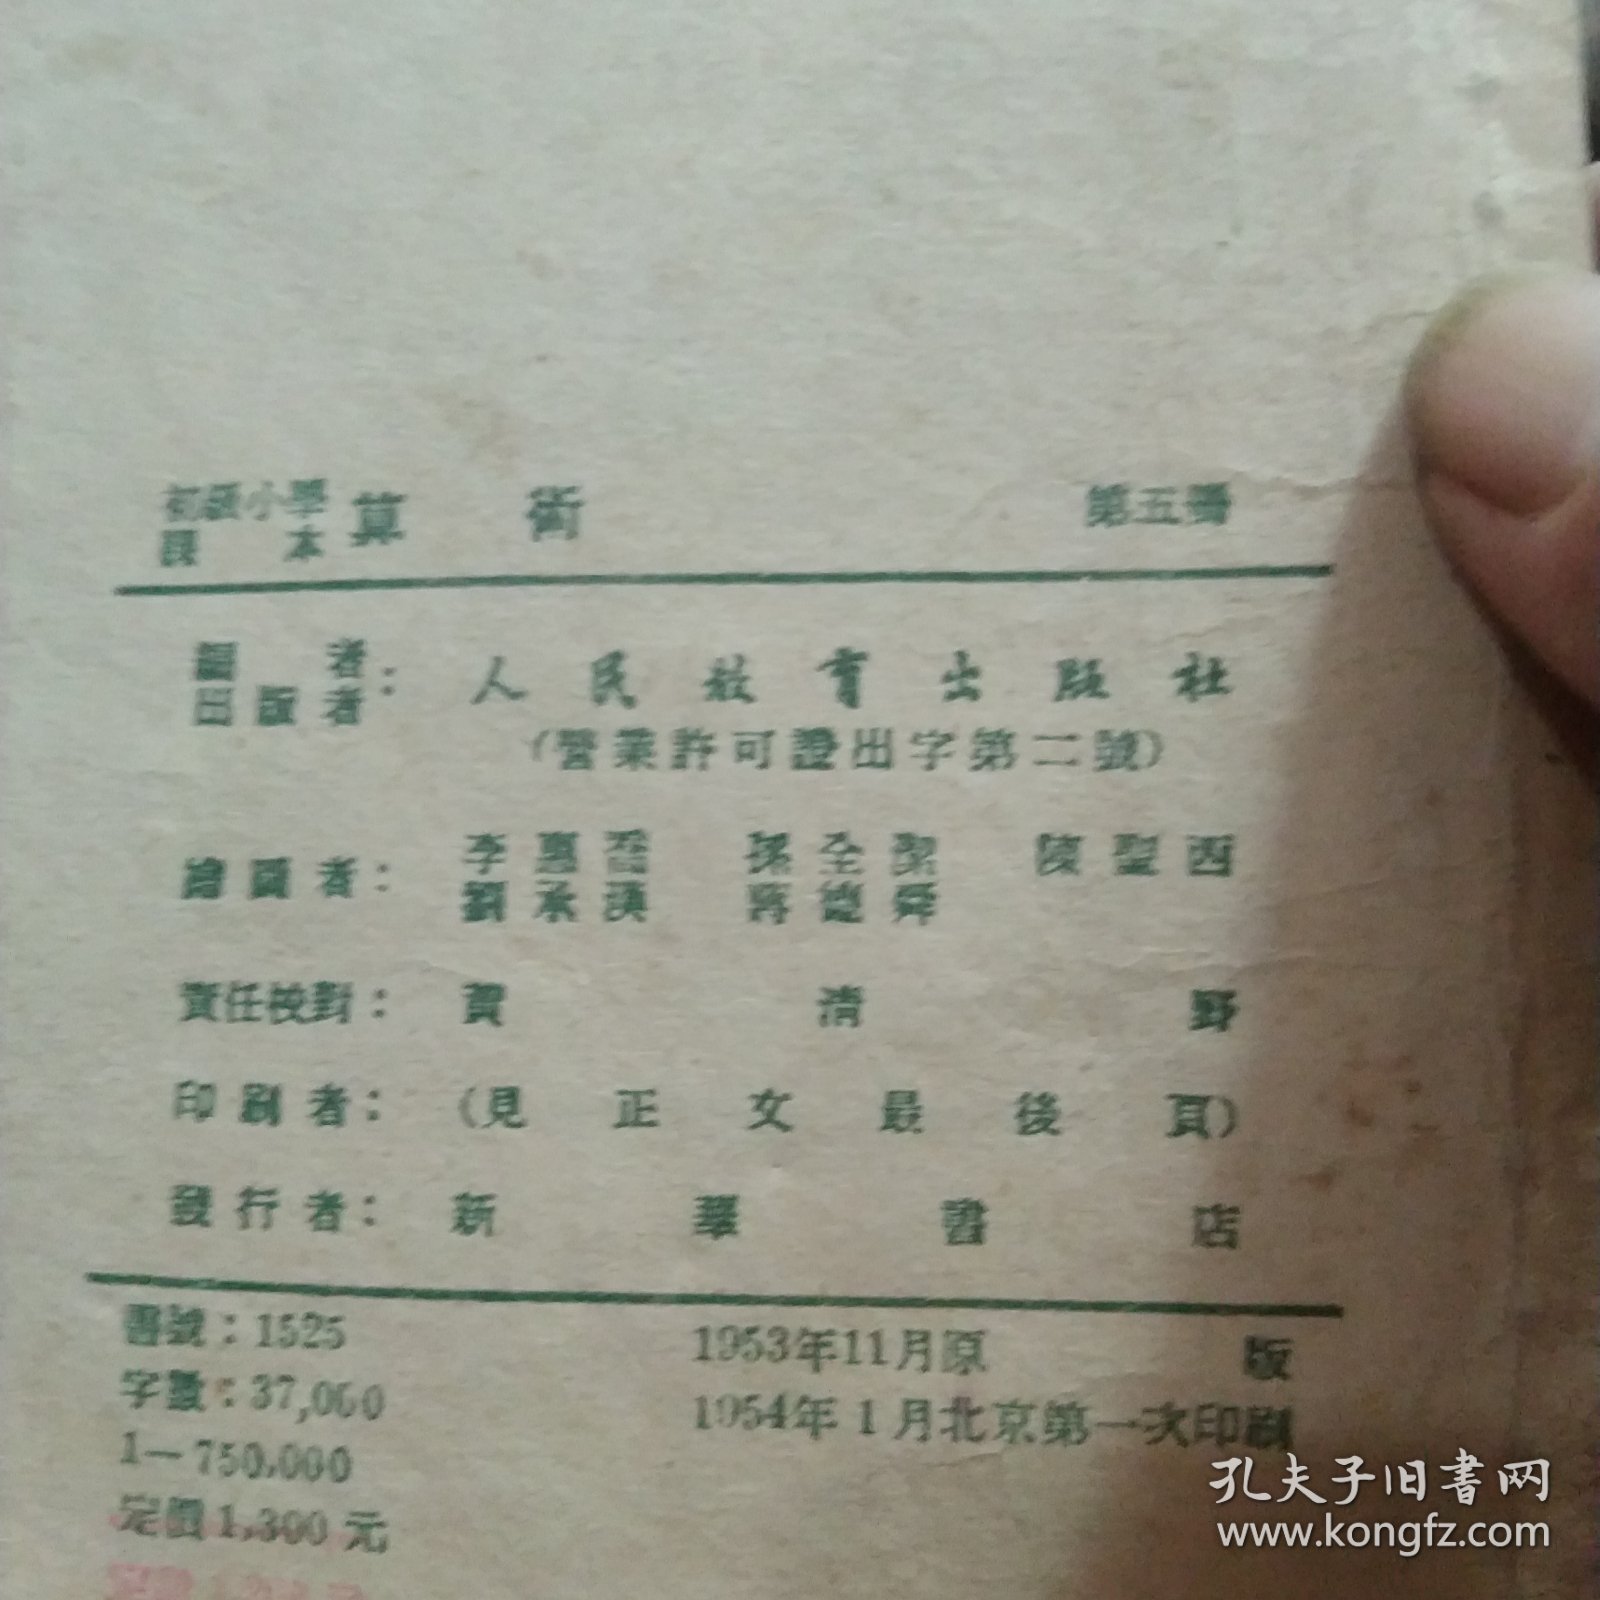 初級小學
課本 算術 第五冊
編者
出版者：人民教育出版社
（營業許可證出字第二號）
繪圖者：李惠喬 孫全潔 陳聖西
劉承漢 蔣德舜
責任校對：賀清野
印刷者：（見正文最後頁）
發行者：新華書店
書號：1525 1953年11月原版
字數：37,000 1954年1月北京第一次印刷
1—750,000
定價1,300元
孔夫子旧书网
www.kongfz.com